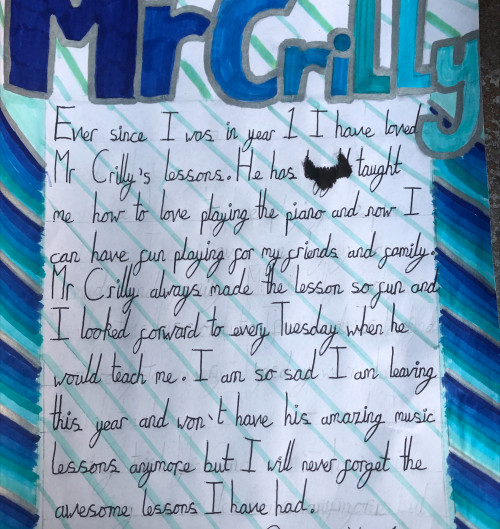 Mr Crilly
Ever since I was in year 1 I have loved
Mr Crilly's lessons. He has taught
me how to love playing the piano and now I
can have fun playing for my friends and family.
Mr Crilly always made the lesson so fun and
I looked forward to every Tuesday when he
would teach me. I am so sad I am leaving
this year and won't have his amazing music
lessons anymore but I will never forget the
awesome lessons I have had.